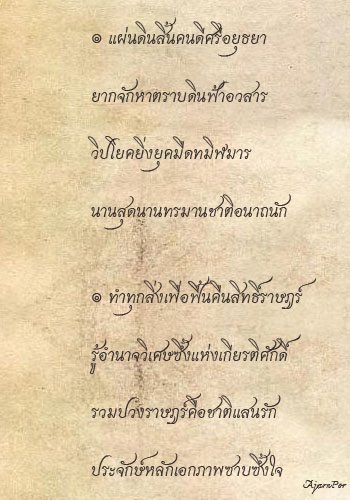 ๏ แผ่นดินสิ้นคนดีศรีอยุธยา
ยากจักหาตราบดินฟ้าอวสาร
วิปโยคยิ่งยุคมืดทมิฬมาร
นานสุดนานทรมานชาติอนาถนัก
๏ ทำทุกสิ่งเพื่อฟื้นคืนสิทธิ์ราษฎร์
รู้อำนาจวิเศษซึ้งแห่งเกียรติศักดิ์
รวมปวงราษฎร์คือชาติแสนรัก
ประจักษ์หลักเอกภาพซาบซึ้งใจ
AjarnPor